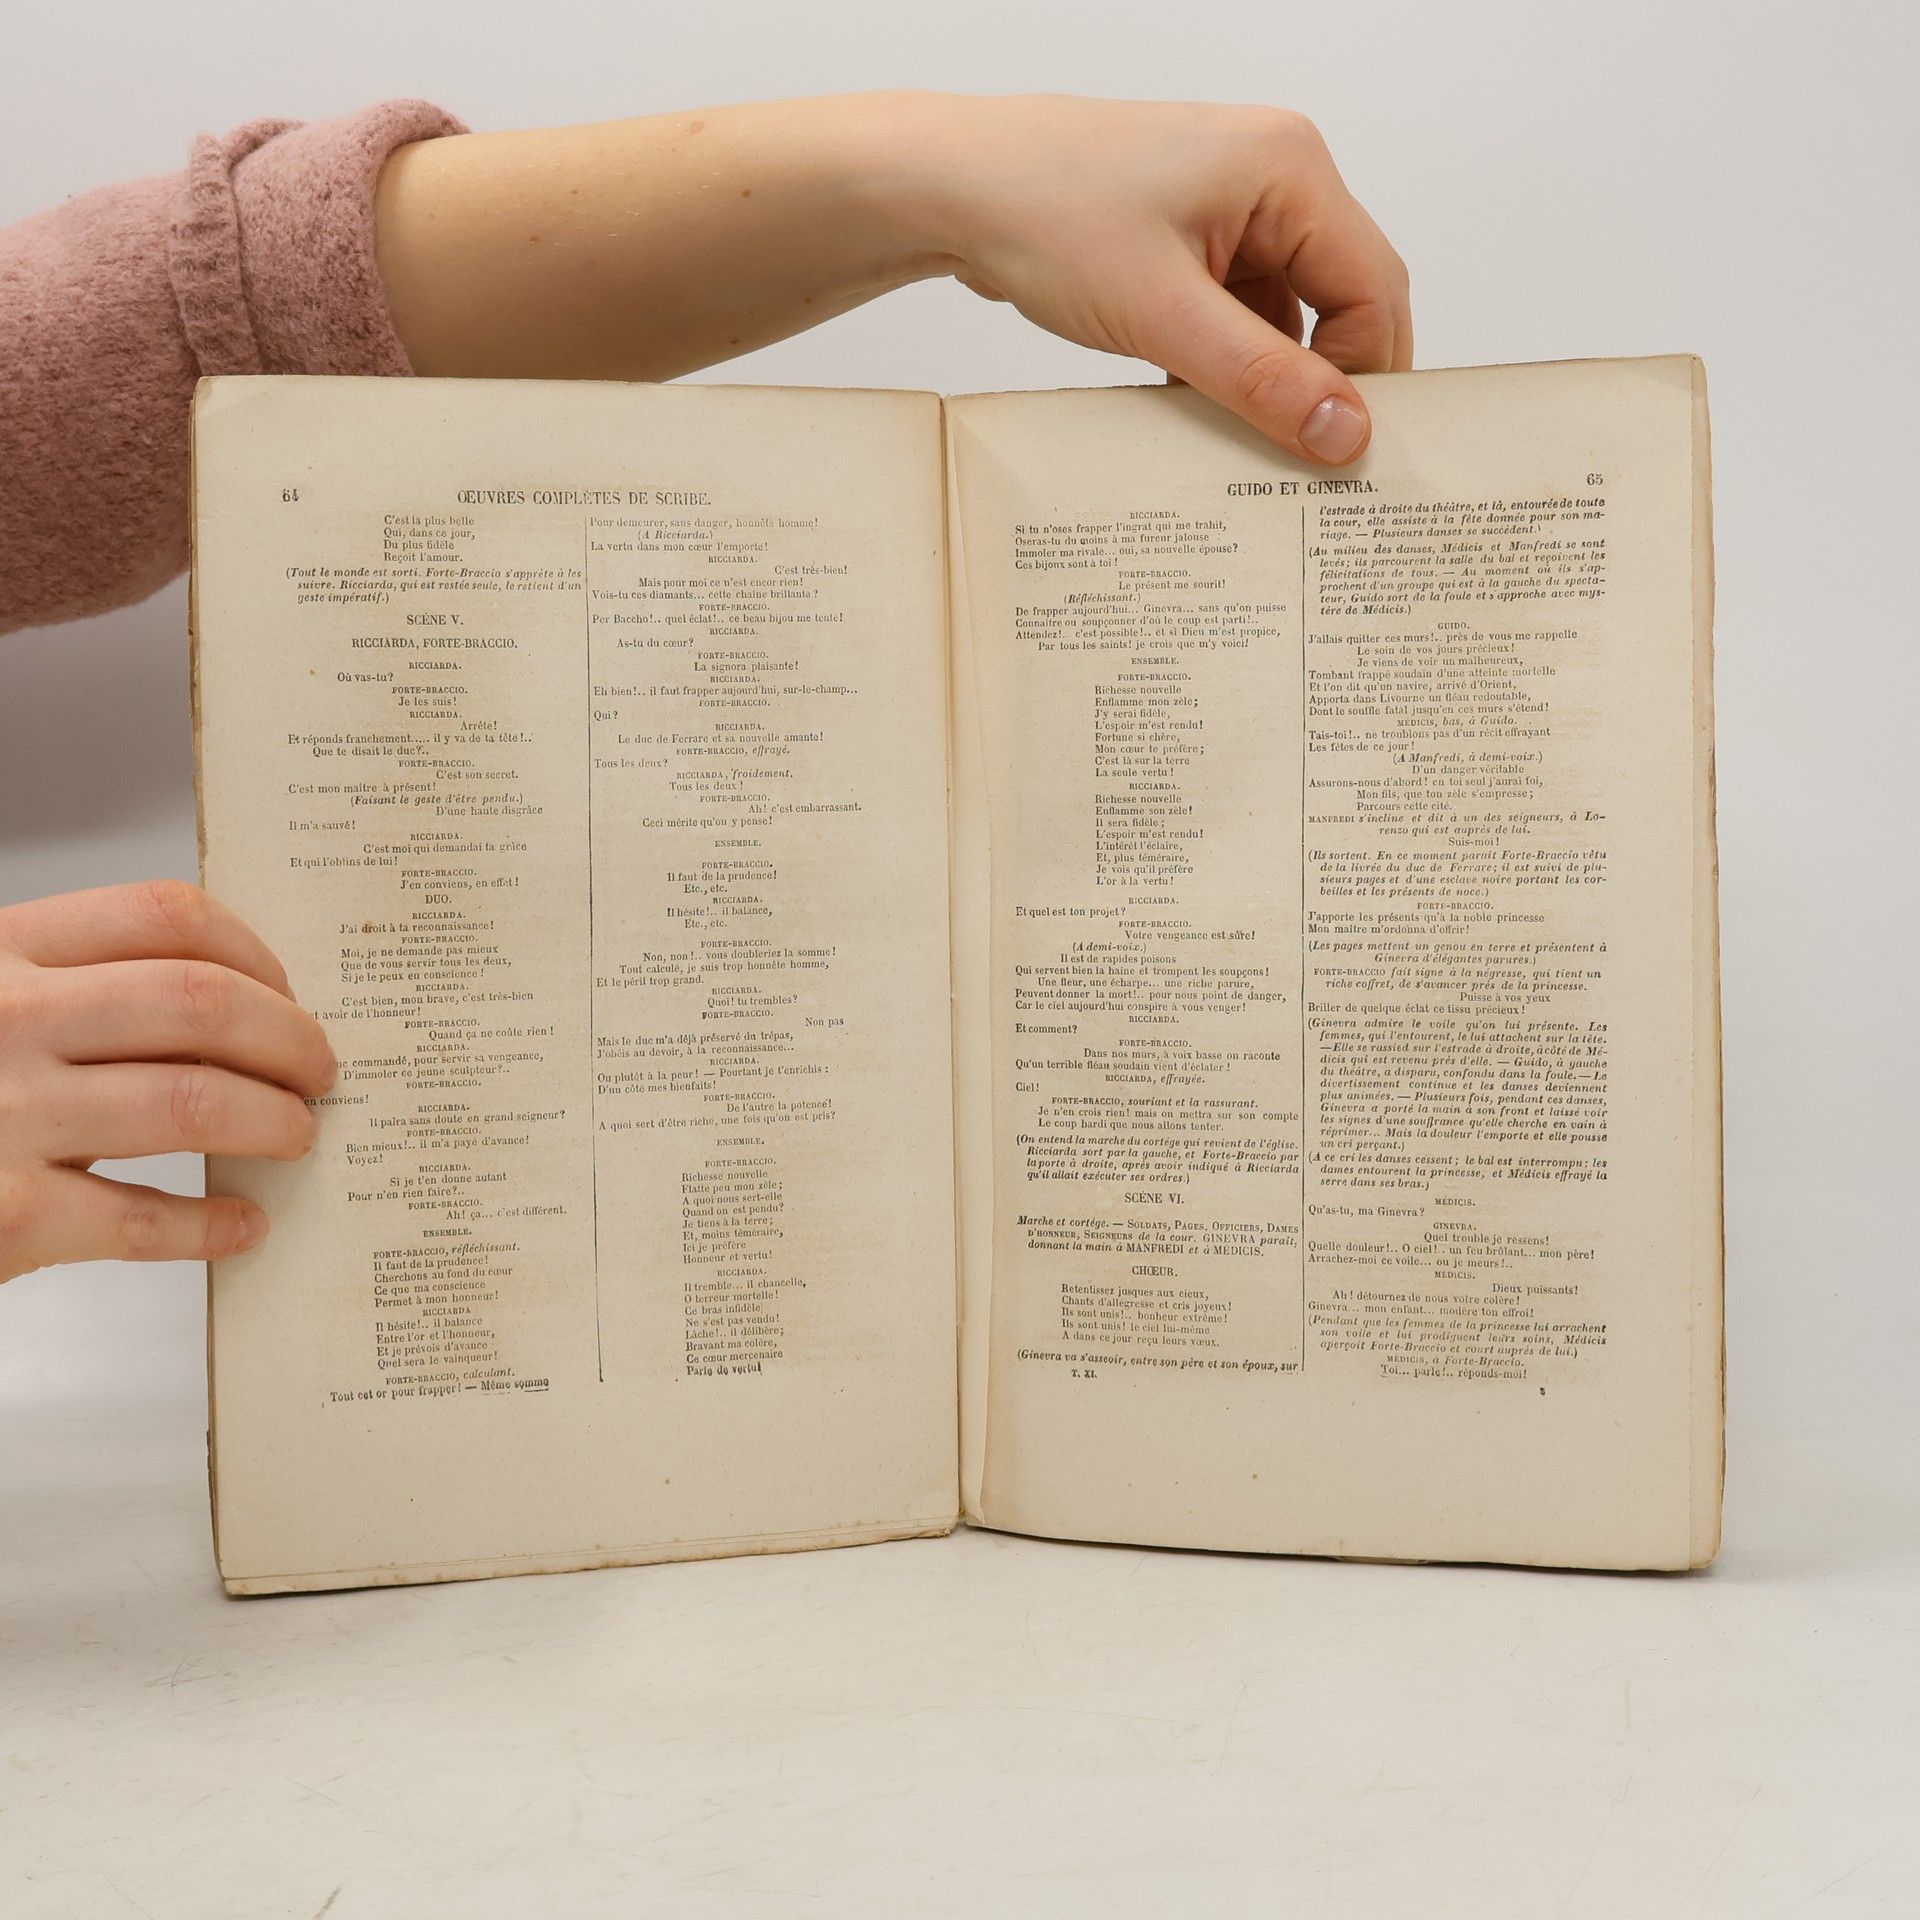 64
OEUVRES COMPLÈTES DE SCRIBE.
C'est la plus belle
Qui, dans ce jour,
Du plus fidèle
Reçoit l'amour.
(Tout le monde est sorti. Forte-Braccio s'apprête à les
suivre. Ricciarda, qui est restée seule, le retient d'un
geste impératif.)
SCÈNE V.
RICCIARDA, FORTE-BRACCIO.
RICCIARDA.
Où vas-tu?
FORTE-BRACCIO.
Je les suis!
RICCIARDA.
Arrête!
Et réponds franchement..... il y va de ta tête!..
Que te disait le duc?..
FORTE-BRACCIO.
C'est son secret.
C'est mon maître à présent!
(Faisant le geste d'être pendu.)
D'une haute disgrâce
Il m'a sauvé!
RICCIARDA.
C'est moi qui demandai ta grâce
Et qui l'obtins de lui!
FORTE-BRACCIO.
J'en conviens, en effet!
DUO.
RICCIARDA.
J'ai droit à ta reconnaissance!
FORTE-BRACCIO.
Moi, je ne demande pas mieux
Que de vous servir tous les deux,
Si je le peux en conscience!
RICCIARDA.
C'est bien, mon brave, c'est très-bien
avoir de l'honneur!
FORTE-BRACCIO.
Quand ça ne coûte rien!
RICCIARDA.
commandé, pour servir sa vengeance,
D'immoler ce jeune sculpteur?..
FORTE-BRACCIO.
conviens!
RICCIARDA.
Il paîra sans doute en grand seigneur?
FORTE-BRACCIO.
Bien mieux!.. il m'a payé d'avance!
Voyez!
RICCIARDA.
Si je t'en donne autant
Pour n'en rien faire?..
FORTE-BRACCIO.
Ah! ça... c'est différent.
ENSEMBLE.
FORTE-BRACCIO, réfléchissant.
Il faut de la prudence!
Cherchons au fond du cœur
Ce que ma conscience
Permet à mon honneur!
RICCIARDA
Il hésite!.. il balance
Entre l'or et l'honneur,
Et je prévois d'avance
Quel sera le vainqueur!
FORTE-BRACCIO, calculant.
Tout cet or pour frapper! — Même somme
Pour demeurer, sans danger, honnête homme!
(A Ricciarda.)
La vertu dans mon cœur l'emporte!
RICCIARDA.
C'est très-bien!
Mais pour moi ce n'est encor rien!
Vois-tu ces diamants... cette chaîne brillante?
FORTE-BRACCIO.
Per Baccho!.. quel éclat!.. ce beau bijou me tente!
RICCIARDA.
As-tu du cœur?
FORTE-BRACCIO.
La signora plaisante!
RICCIARDA.
Eh bien!.. il faut frapper aujourd'hui, sur-le-champ...
FORTE-BRACCIO.
Qui?
RICCIARDA.
Le duc de Ferrare et sa nouvelle amante!
FORTE-BRACCIO, effrayé.
Tous les deux?
RICCIARDA, froidement.
Tous les deux!
FORTE-BRACCIO.
Ah! c'est embarrassant.
Ceci mérite qu'on y pense!
ENSEMBLE.
FORTE-BRACCIO.
Il faut de la prudence!
Etc., etc.
RICCIARDA.
Il hésite!.. il balance,
Etc., etc.
FORTE-BRACCIO.
Non, non!.. vous doubleriez la somme!
Tout calculé, je suis trop honnête homme,
Et le péril trop grand.
RICCIARDA.
Quoi! tu trembles?
FORTE-BRACCIO.
Non pas
Mais le duc m'a déjà préservé du trépas,
J'obéis au devoir, à la reconnaissance...
RICCIARDA.
Ou plutôt à la peur! — Pourtant je t'enrichis:
D'un côté mes bienfaits!
FORTE-BRACCIO.
De l'autre la potence!
A quoi sert d'être riche, une fois qu'on est pris?
ENSEMBLE.
FORTE-BRACCIO.
Richesse nouvelle
Flatte peu mon zèle;
A quoi nous sert-elle
Quand on est pendu?
Je tiens à la terre;
Et, moins téméraire,
Ici je préfère
Honneur et vertu!
RICCIARDA.
Il tremble... il chancelle,
O terreur mortelle!
Ce bras infidèle
Ne s'est pas vendu!
Lâche!.. il délibère;
Bravant ma colère,
Ce cœur mercenaire
Parle de vertu!
GUIDO ET GINEVRA.
65
RICCIARDA.
Si tu n'oses frapper l'ingrat qui me trahit,
Oseras-tu du moins à ma fureur jalouse
Immoler ma rivale... oui, sa nouvelle épouse?
Ces bijoux sont à toi!
FORTE-BRACCIO.
Le présent me sourit!
(Réfléchissant.)
De frapper aujourd'hui... Ginevra... sans qu'on puisse
Connaître ou soupçonner d'où le coup est parti!..
Attendez!.. c'est possible!.. et si Dieu m'est propice,
Par tous les saints! je crois que m'y voici!
ENSEMBLE.
FORTE-BRACCIO.
Richesse nouvelle
Enflamme mon zèle;
J'y serai fidèle,
L'espoir m'est rendu!
Fortune si chère,
Mon cœur te préfère;
C'est là sur la terre
La seule vertu!
RICCIARDA.
Richesse nouvelle
Enflamme son zèle!
Il sera fidèle;
L'espoir m'est rendu!
L'intérêt l'éclaire,
Et, plus téméraire,
Je vois qu'il préfère
L'or à la vertu!
RICCIARDA.
Et quel est ton projet?
FORTE-BRACCIO.
Votre vengeance est sûre!
(A demi-voix.)
Il est de rapides poisons
Qui servent bien la haine et trompent les soupçons!
Une fleur, une écharpe... une riche parure,
Peuvent donner la mort!.. pour nous point de danger,
Car le ciel aujourd'hui conspire à vous venger!
RICCIARDA.
Et comment?
FORTE-BRACCIO.
Dans nos murs, à voix basse on raconte
Qu'un terrible fléau soudain vient d'éclater!
RICCIARDA, effrayée.
Ciel!
FORTE-BRACCIO, souriant et la rassurant.
Je n'en crois rien! mais on mettra sur son compte
Le coup hardi que nous allons tenter.
(On entend la marche du cortége qui revient de l'église.
Ricciarda sort par la gauche, et Forte-Braccio par
la porte à droite, après avoir indiqué à Ricciarda
qu'il allait exécuter ses ordres.)
SCÈNE VI.
Marche et cortége. — SOLDATS, PAGES, OFFICIERS, DAMES
D'HONNEUR, SEIGNEURS de la cour. GINEVRA paraît,
donnant la main à MANFREDI et à MÉDICIS.
CHŒUR.
Retentissez jusques aux cieux,
Chants d'allégresse et cris joyeux!
Ils sont unis!.. bonheur extrême!
Ils sont unis! le ciel lui-même
A dans ce jour reçu leurs vœux.
(Ginevra va s'asseoir, entre son père et son époux, sur
T. XI.
l'estrade à droite du théâtre, et là, entourée de toute
la cour, elle assiste à la fête donnée pour son ma-
riage. — Plusieurs danses se succèdent.)
(Au milieu des danses, Médicis et Manfredi se sont
levés; ils parcourent la salle du bal et reçoivent les
félicitations de tous. — Au moment où ils s'ap-
prochent d'un groupe qui est à la gauche du specta-
teur, Guido sort de la foule et s'approche avec mys-
tère de Médicis.)
GUIDO.
J'allais quitter ces murs!.. près de vous me rappelle
Le soin de vos jours précieux!
Je viens de voir un malheureux,
Tombant frappé soudain d'une atteinte mortelle
Et l'on dit qu'un navire, arrivé d'Orient,
Apporta dans Livourne un fléau redoutable,
Dont le souffle fatal jusqu'en ces murs s'étend!
MÉDICIS, bas, à Guido.
Tais-toi!.. ne troublons pas d'un récit effrayant
Les fêtes de ce jour!
(A Manfredi, à demi-voix.)
D'un danger véritable
Assurons-nous d'abord! en toi seul j'aurai foi,
Mon fils, que ton zèle s'empresse;
Parcours cette cité.
MANFREDI s'incline et dit à un des seigneurs, à Lo-
renzo qui est auprès de lui.
Suis-moi!
(Ils sortent. En ce moment paraît Forte-Braccio vêtu
de la livrée du duc de Ferrare; il est suivi de plu-
sieurs pages et d'une esclave noire portant les cor-
beilles et les présents de noce.)
FORTE-BRACCIO.
J'apporte les présents qu'à la noble princesse
Mon maître m'ordonna d'offrir!
(Les pages mettent un genou en terre et présentent à
Ginevra d'élégantes parures.)
FORTE-BRACCIO fait signe à la négresse, qui tient un
riche coffret, de s'avancer près de la princesse.
Puisse à vos yeux
Briller de quelque éclat ce tissu précieux!
(Ginevra admire le voile qu'on lui présente. Les
femmes, qui l'entourent, le lui attachent sur la tête.
—Elle se rassied sur l'estrade à droite, à côté de Mé-
dicis qui est revenu près d'elle. — Guido, à gauche
du théâtre, a disparu, confondu dans la foule.— Le
divertissement continue et les danses deviennent
plus animées. — Plusieurs fois, pendant ces danses,
Ginevra a porté la main à son front et laissé voir
les signes d'une souffrance qu'elle cherche en vain à
réprimer... Mais la douleur l'emporte et elle pousse
un cri perçant.)
(A ce cri les danses cessent; le bal est interrompu; les
dames entourent la princesse, et Médicis effrayé la
serre dans ses bras.)
MÉDICIS.
Qu'as-tu, ma Ginevra?
GINEVRA.
Quel trouble je ressens!
Quelle douleur!.. O ciel!.. un feu brûlant... mon père!
Arrachez-moi ce voile... ou je meurs!..
MÉDICIS.
Dieux puissants!
Ah! détournez de nous votre colère!
Ginevra... mon enfant... modère ton effroi!
(Pendant que les femmes de la princesse lui arrachent
son voile et lui prodiguent leurs soins, Médicis
aperçoit Forte-Braccio et court auprès de lui.)
MÉDICIS, à Forte-Braccio.
Toi... parle!.. réponds-moi!
5